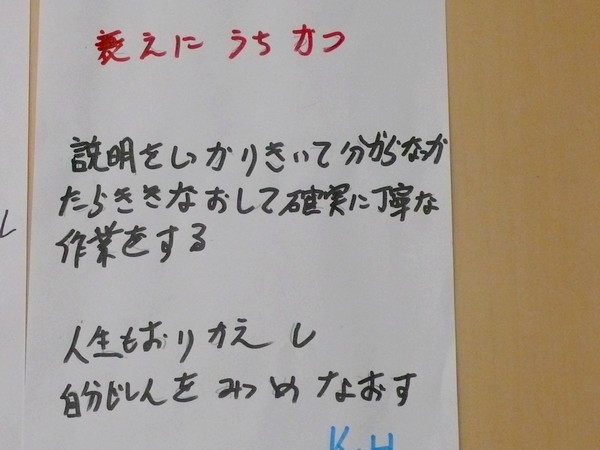 衰えにうちかつ
説明をしっかりきいて分からなっか
たらききなおして確実に丁寧な
作業をする
人生もおりかえし
自分じしんをみつめなおす
K.H